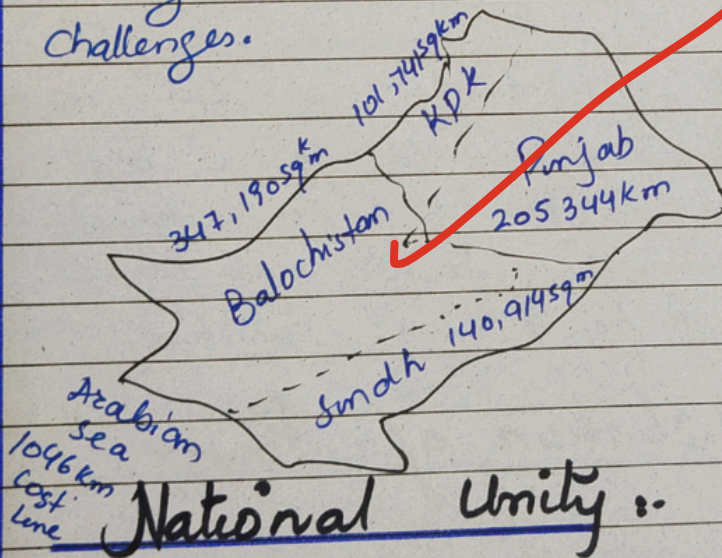 challenges.
101,741sqkm
KPK
347,190sqkm
Punjab
205344km
Balochistan
140,914sqm
Sindh
Arabian
Sea
1046km
cost
line
National Unity :.